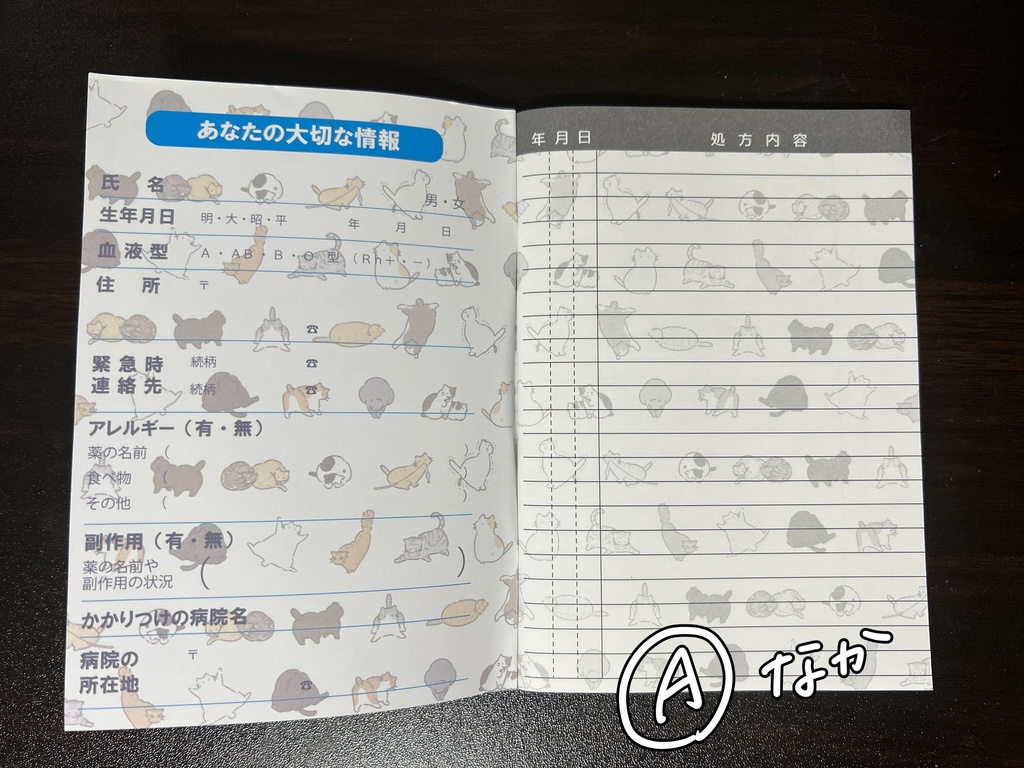 あなたの大切な情報
氏 名 男・女
生年月日 明・大・昭・平 年 月 日
血液型 A・AB・B・O 型 (Rh+・−)
住 所 〒
☎
緊急時 続柄 ☎
連絡先 続柄 ☎
アレルギー(有・無)
薬の名前 ( )
食べ物 ( )
その他 ( )
副作用(有・無)
薬の名前や
副作用の状況 ( )
かかりつけの病院名
病院の 〒
所在地 ☎
年月日 処方内容
A なか